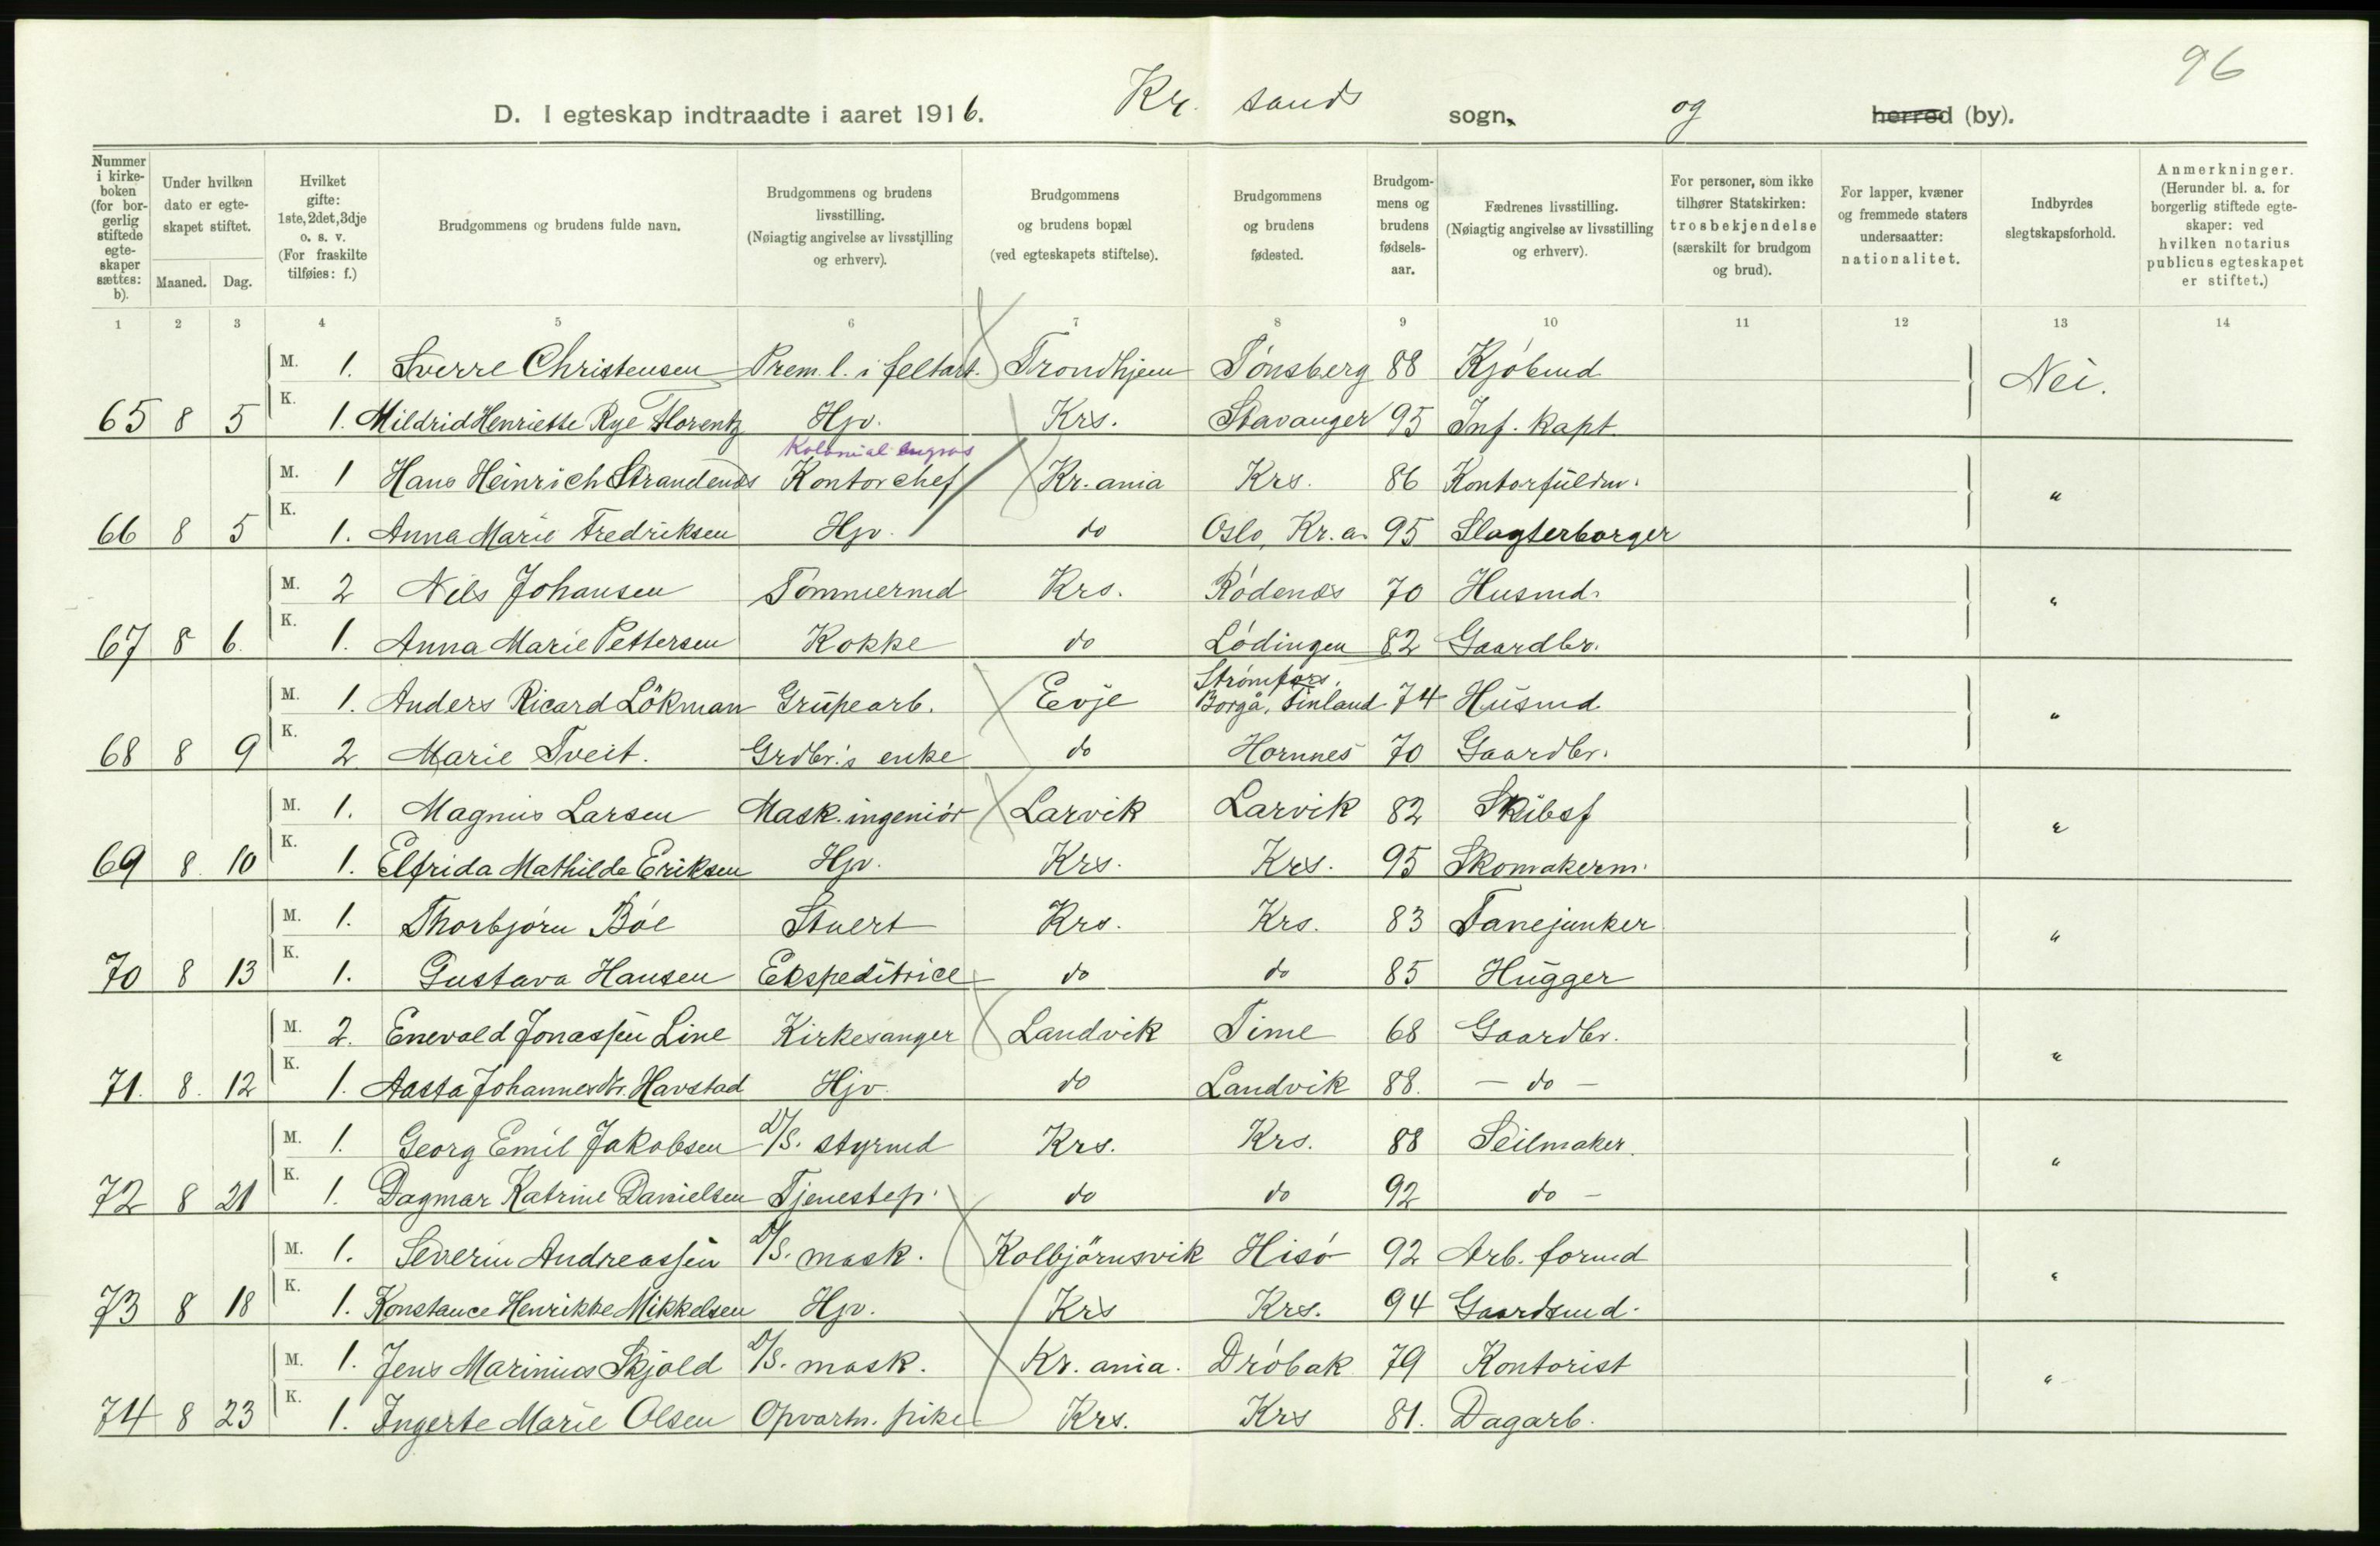 96
D. I egteskap indtraadte i aaret 1916. Kr. sands sogn, og herred (by).
Nummer i kirkeboken (for borgerlig stiftede egteskaper sættes: b).
Under hvilken dato er egteskapet stiftet.
Maaned. Dag.
Hvilket gifte: 1ste, 2det, 3dje o. s. v. (For fraskilte tilføies: f.)
Brudgommens og brudens fulde navn.
Brudgommens og brudens livsstilling. (Nøiagtig angivelse av livsstilling og erhverv).
Brudgommens og brudens bopæl (ved egteskapets stiftelse).
Brudgommens og brudens fødested.
Brudgommens og brudens fødselsaar.
Fædrenes livsstilling. (Nøiagtig angivelse av livsstilling og erhverv).
For personer, som ikke tilhører Statskirken: trosbekjendelse (særskilt for brudgom og brud).
For lapper, kvæner og fremmede staters undersaatter: nationalitet.
Indbyrdes slegtskapsforhold.
Anmerkninger. (Herunder bl. a. for borgerlig stiftede egteskaper: ved hvilken notarius publicus egteskapet er stiftet.)
1 2 3 4 5 6 7 8 9 10 11 12 13 14
M. 1. Sverre Christensen Prem.l. i feltart. Trondhjem Tønsberg 88 Kjøbmd Nei.
65 8 5 K. 1. Mildrid Henriette Rye Florentz Hjv. Krs. Stavanger 95 Inf. Kapt.
Kolonial engros
M. 1 Hans Heinrich Strandenæs Kontorchef Kr.ania Krs. 86 Kontorfuldm. "
66 8 5 K. 1. Anna Marie Fredriksen Hjv. do Oslo, Kr.a. 95 Slagterborger
M. 2 Nils Johansen Tømmermd Krs. Rødenes 70 Husmd. "
67 8 6. K. 1. Anna Marie Pettersen Kokke do Lødingen 82 Gaardbr.
Strømfors,
M. 1. Anders Ricard Lökman Grubearb. Evje Borgå, Finland 74 Husmd. "
68 8 9 K. 2 Marie Tveit. Grdbr.'s enke do Hornnes 70 Gaardbr.
M. 1. Magnus Larsen Mask.ingeniør Larvik Larvik 82 Skibsf "
69 8. 10 K. 1. Elfrida Mathilde Eriksen Hjv. Krs. Krs. 95 Skomakerm.
M. 1. Thorbjørn Bøe Stuert Krs. Krs. 83 Fanejunker "
70 8 13 K. 1. Gustava Hansen Ekspeditrice do do 85 Hugger
M. 2. Enevald Jonassen Line Kirkesanger Landvik Time 68 Gaardbr. "
71. 8. 12 K. 1. Aasta Johannesdtr. Havstad Hjv. do Landvik 88. - do -
M. 1. Georg Emil Jakobsen D/S. styrmd Krs. Krs. 88 Seilmaker. "
72 8 21 K. 1. Dagmar Katrine Danielsen Tjenestep. do do 92 do -
M. 1. Severin Andreassen D/S. mask. Kolbjörnsvik Hisø 92 Arb. formd "
73 8 18 K. 1. Konstance Henrikke Mikkelsen Hjv. Krs Krs. 94 Gaardsmd.
M. 1. Jens Marinius Skjold D/S. mask. Kr. ania. Drøbak 79 Kontorist "
74 8 23 K. 1. Ingerte Marie Olsen Opvartn. pike Krs. Krs 81. Dagarb.